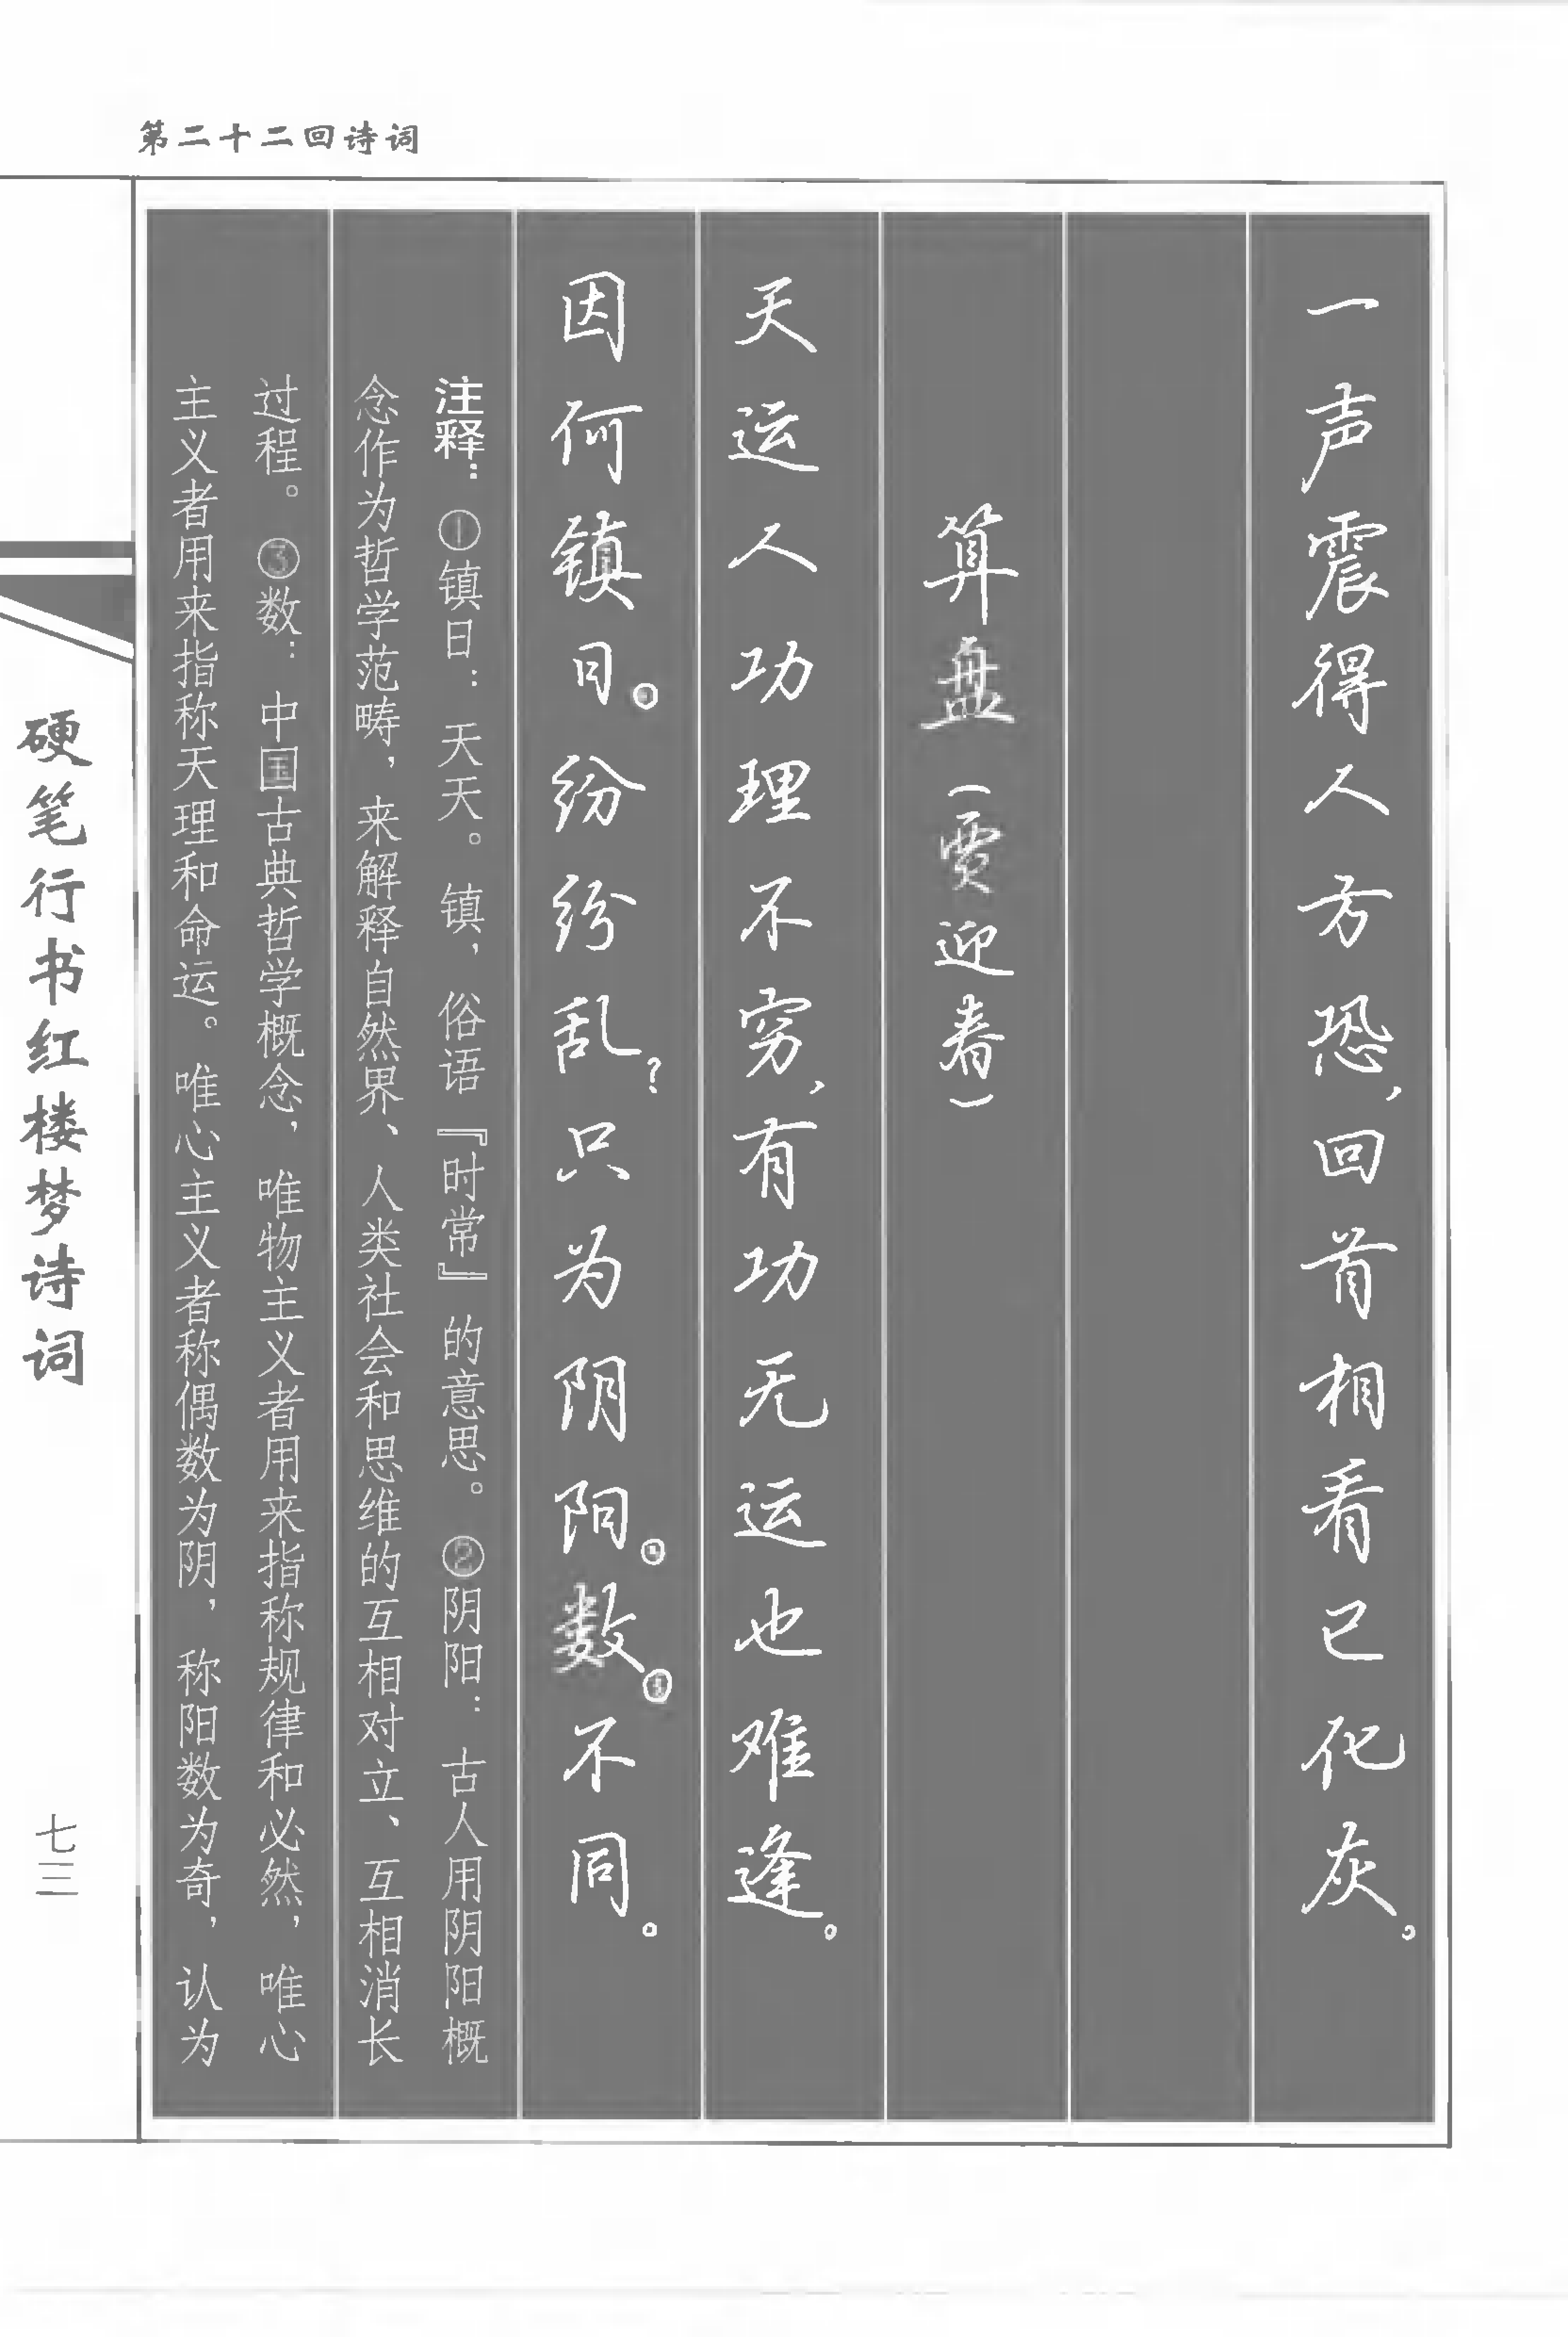 第二十二回诗词
一声震得人方恐，回首相看已化灰。
算盘（贾迎春）
天运人功理不穷，有功无运也难逢。
因何镇日①纷纷乱？只为阴阳②数③不同。
注释：①镇日：天天。镇，俗语『时常』的意思。②阴阳：古人用阴阳概
念作为哲学范畴，来解释自然界、人类社会和思维的互相对立、互相消长
过程。③数：中国古典哲学概念，唯物主义者用来指称规律和必然，唯心
主义者用来指称天理和命运。唯心主义者称偶数为阴，称阳数为奇，认为
硬笔行书红楼梦诗词
七三